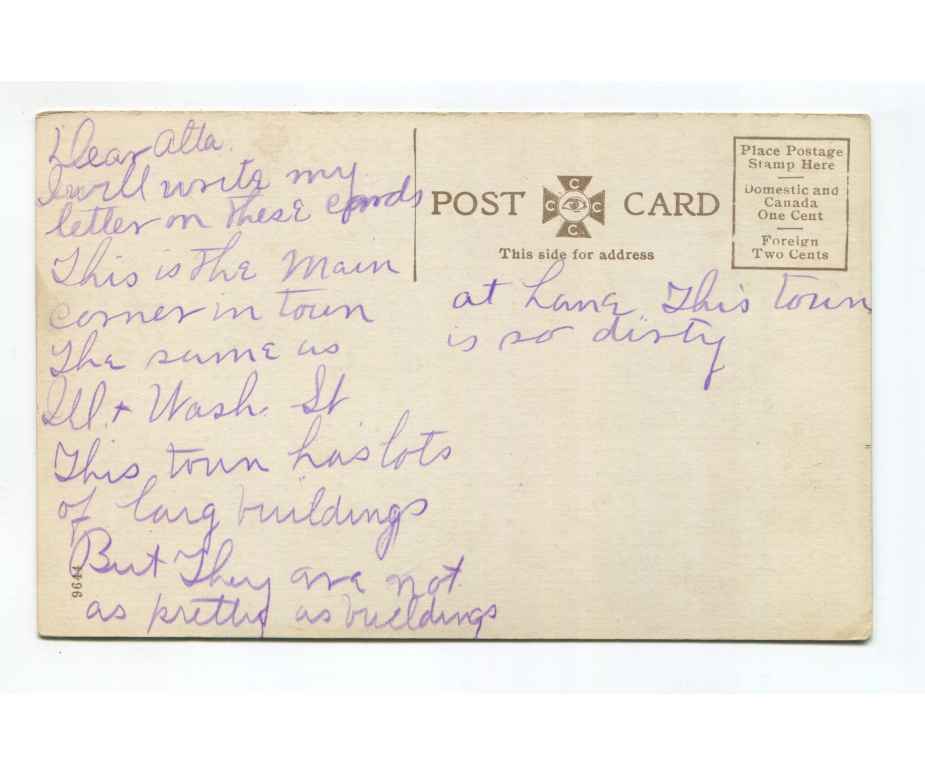 Dear Alta.
I will write my
letter on these cards
This is the Main
corner in town
The same as
Ill. + Wash. St
This town has lots
of larg buildings
But They are not
as pretty as buildings
at hame. This town
is so dirty
POST CARD
C C C C
This side for address
Place Postage
Stamp Here
Domestic and
Canada
One Cent
Foreign
Two Cents
9644